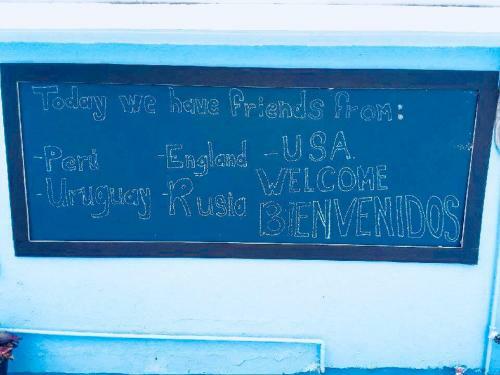 Today we have friends from:
-Perú -England -USA.
-Uruguay -Rusia WELCOME
BIENVENIDOS